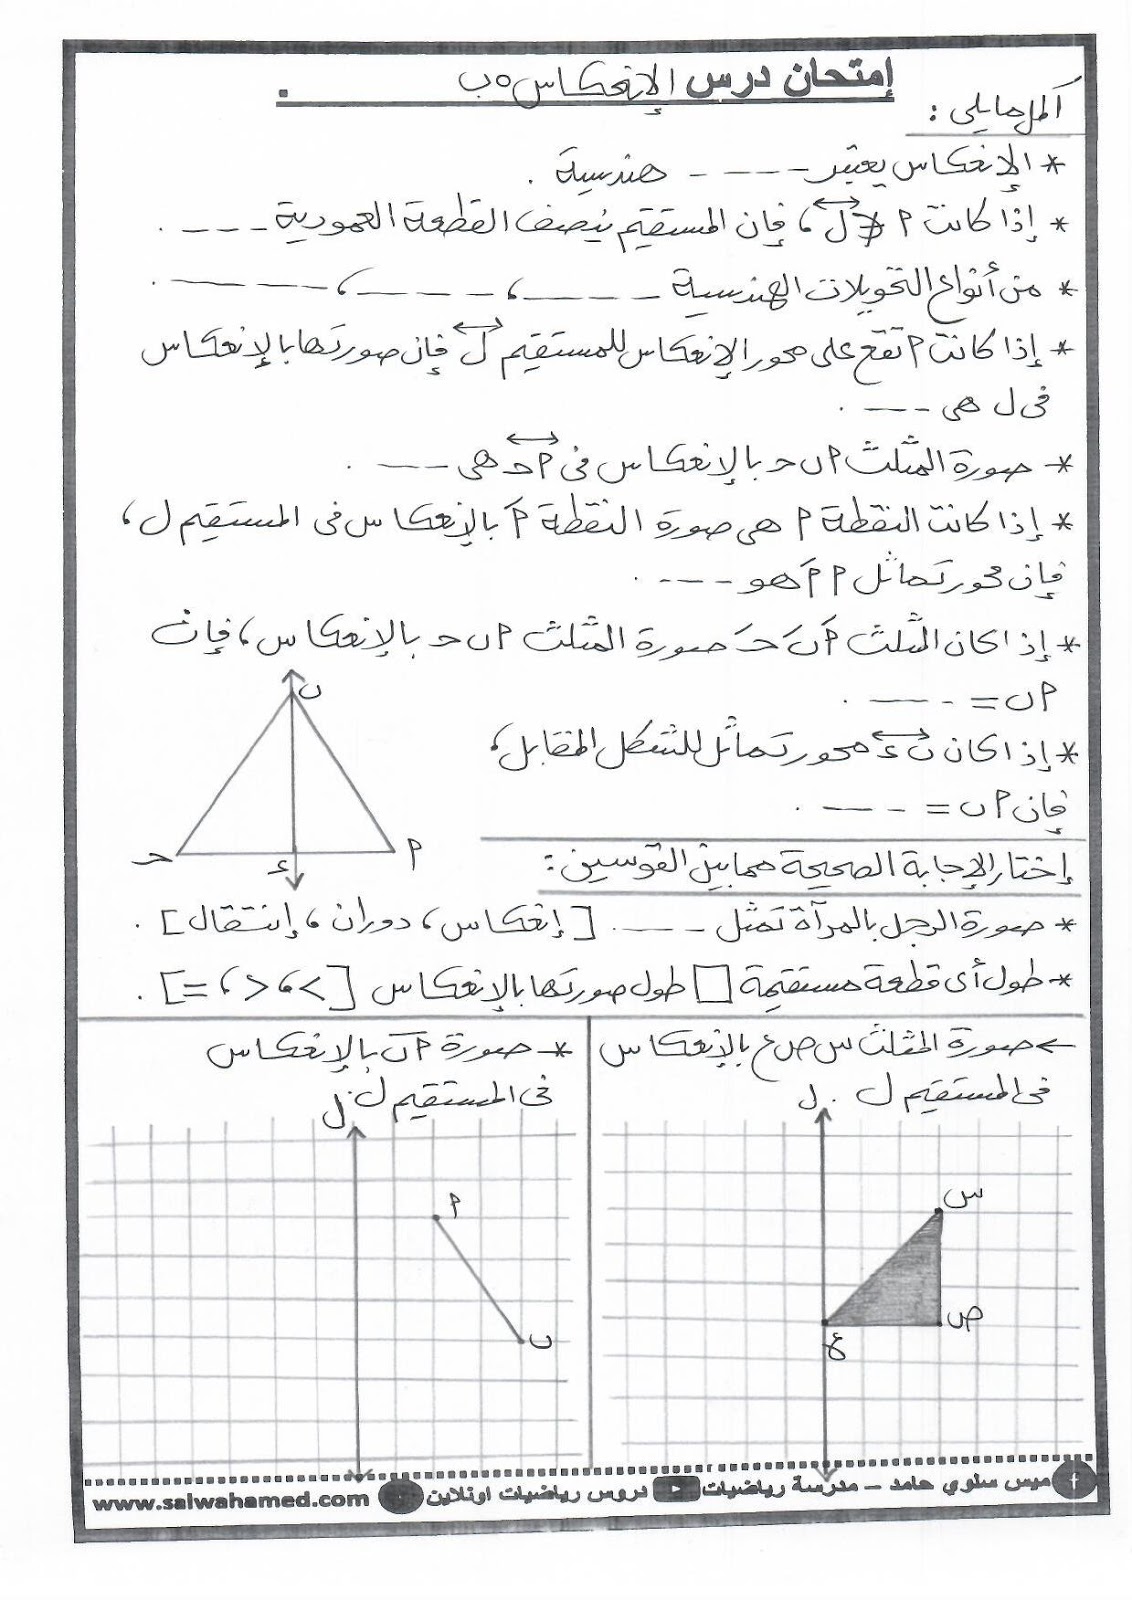 إمتحان درس الإنعكاس ٥ب .
أكمل مايلى :
* الإنعكاس يعتبر ---- هندسية .
* إذا كانت م ∉ ل ، فإن المستقيم يُنصف القطعة العمودية ---- .
* من أنواع التحويلات الهندسية ---- ، ---- ، ---- .
* إذا كانت م تقع على محور الإنعكاس للمستقيم ل فإن صورتها بالإنعكاس
فى ل هى ---- .
* صورة المثلث م ں حـ بالإنعكاس فى م حـ هى ---- .
* إذا كانت النقطة م هى صورة النقطة مَ بالإنعكاس فى المستقيم ل ،
فإن محور تماثل م مَ هو ---- .
* إذا كان المثلث مَ ںَ حـَ صورة المثلث م ں حـ بالإنعكاس ، فإن
م ں = ---- .
* إذا كان ں ء محور تماثل للشكل المقابل ،
فإن م ں = ---- .
ں
حـ
ء
م
إختار الإجابة الصحيحة مما بين القوسين :
* صورة الرجل بالمرآة تمثل ---- [ إنعكاس ، دوران ، إنتقال ] .
* طول أى قطعة مستقيمة □ طول صورتها بالإنعكاس [ > ، < ، = ] .
← صورة المثلث س ص ع بالإنعكاس
فى المستقيم ل .
ل
س
ص
ع
* صورة م ں بالإنعكاس
فى المستقيم ل .
ل
م
ں
ميس سلوي حامد – مدرسة رياضيات
دروس رياضيات اونلاين
www.salwahamed.com